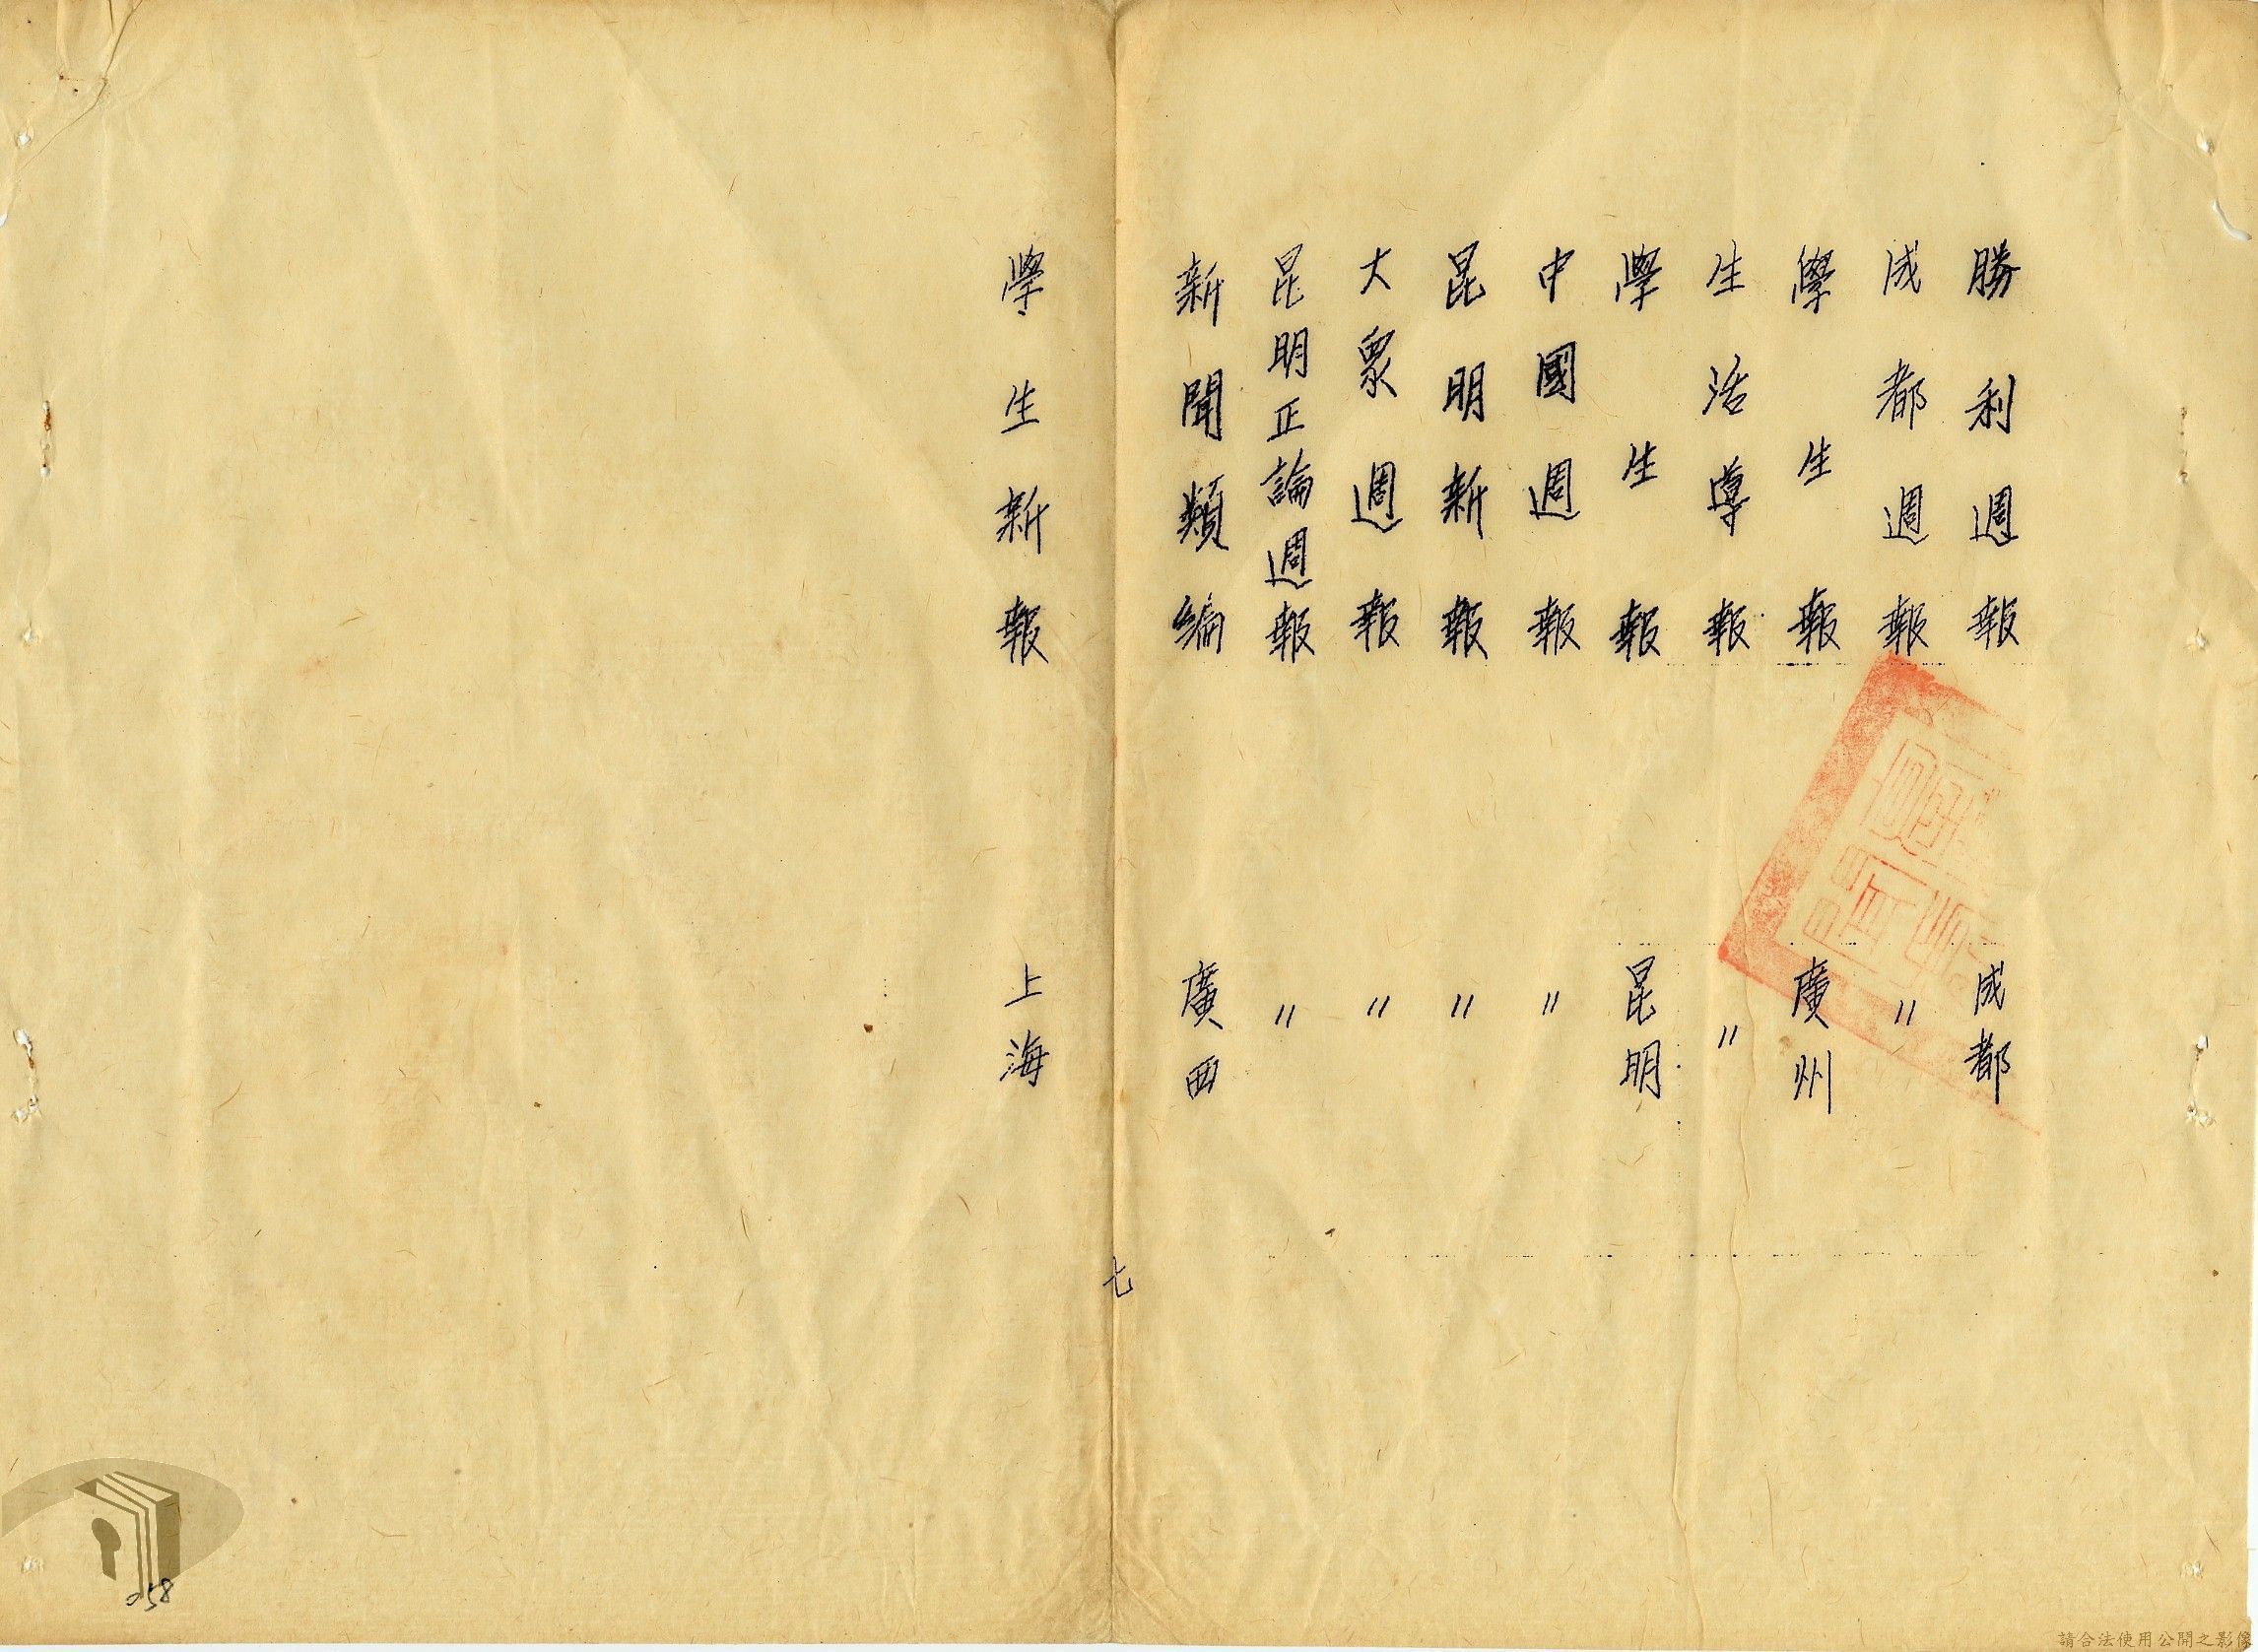 勝利週報 成都
成都週報 〃
學生報 廣州
生活導報 〃
學生報 昆明
中國週報 〃
昆明新報 〃
大衆週報 〃
昆明正論週報 〃
新聞類編 廣西
七
學生新報 上海
058
請合法使用公開之影像